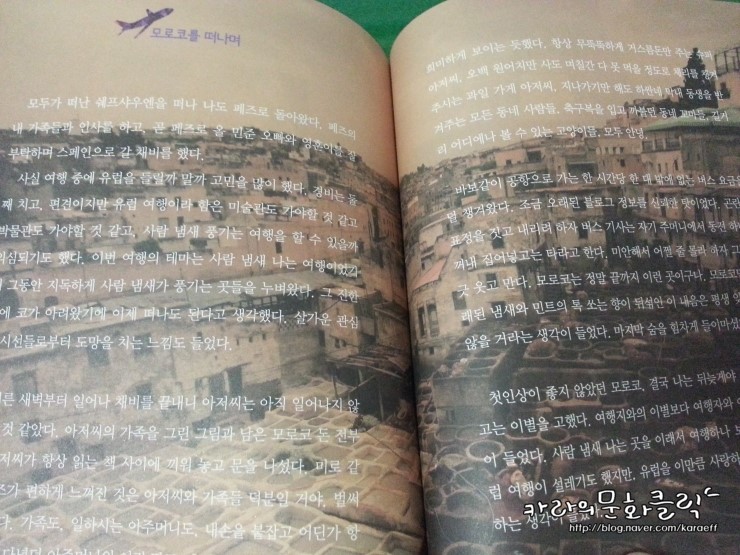 모로코를 떠나며
모두가 떠난 쉐프샤우엔을 떠나 나도 페즈로 돌아왔다. 페즈의
내 가족들과 인사를 하고, 곧 페즈로 올 민준 오빠와 영훈이를 잘
부탁하며 스페인으로 갈 채비를 했다.
사실 여행 중에 유럽을 들릴까 말까 고민을 많이 했다. 경비는 둘
째 치고, 편견이지만 유럽 여행이라 함은 미술관도 가야할 것 같고
박물관도 가야할 것 같고, 사람 냄새 풍기는 여행을 할 수 있을까
심되기도 했다. 이번 여행의 테마는 사람 냄새 나는 여행이었기
그동안 지독하게 사람 냄새가 풍기는 곳들을 누벼왔다. 그 진한
에 코가 아려왔기에 이제 떠나도 된다고 생각했다. 살가운 관심
시선들로부터 도망을 치는 느낌도 들었다.
른 새벽부터 일어나 채비를 끝내니 아저씨는 아직 일어나지 않
것 같았다. 아저씨의 가족을 그린 그림과 남은 모로코 돈 전부
저씨가 항상 읽는 책 사이에 끼워 놓고 문을 나섰다. 미로 같
즈가 편하게 느껴진 것은 아저씨와 가족들 덕분일 거야. 벌써
다. 가족도, 일하시는 아주머니도, 내손을 붙잡고 어딘가 항
희미하게 보이는 듯했다. 항상 무뚝뚝하게 거스름돈만 주는 슈퍼
아저씨, 오백 원어치만 사도 며칠간 다 못 먹을 정도로 체리를 챙겨
주시는 과일 가게 아저씨, 지나가기만 해도 하원네 막내 동생을 반
겨주는 모든 동네 사람들, 축구복을 입고 까불던 동네 꼬마들, 길거
리 어디에나 볼 수 있는 고양이들, 모두 안녕
바보같이 공항으로 가는 한 시간당 한 대 밖에 없는 버스 요금을
덜 챙겨왔다. 조금 오래된 블로그 정보를 신뢰한 탓이었다. 곤란
표정을 짓고 내리려 하자 버스 기사는 자기 주머니에서 동전 하
꺼내 집어넣고는 타라고 한다. 미안해서 어쩔 줄 몰라 하자 그
긋 웃고 만다. 모로코는 정말 끝까지 이런 곳이구나, 모로코
래된 냄새와 민트의 톡 쏘는 향이 뒤섞인 이 내음은 평생 잊
않을 거라는 생각이 들었다. 마지막 숨을 힘차게 들이마셨
첫인상이 좋지 않았던 모로코, 결국 나는 뒤늦게야
고는 이별을 고했다. 여행지와의 이별보다 여행자와 이
이 들었다. 사람 냄새 나는 곳을 이래서 여행하나 보
럽 여행이 설레기도 했지만, 유럽을 이만큼 사랑하
하는 생각이 들었
카라의문화클릭
http://blog.naver.com/karaeff